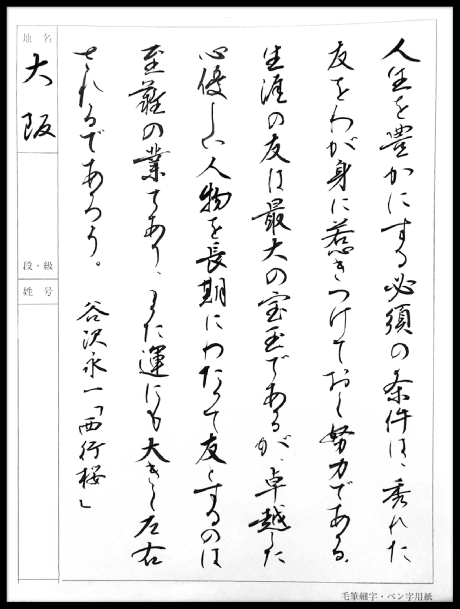 人生を豊かにする必須の条件は、秀れた
友をわが身に惹きつけておく努力である。
生涯の友は最大の宝玉であるが、卓越した
心優しい人物を長期にわたって友とするのは
至難の業であり、また運にも大きく左右
されるであろう。 谷沢永一「西行桜」
地名
大阪
段・級
姓号
毛筆細字・ペン字用紙